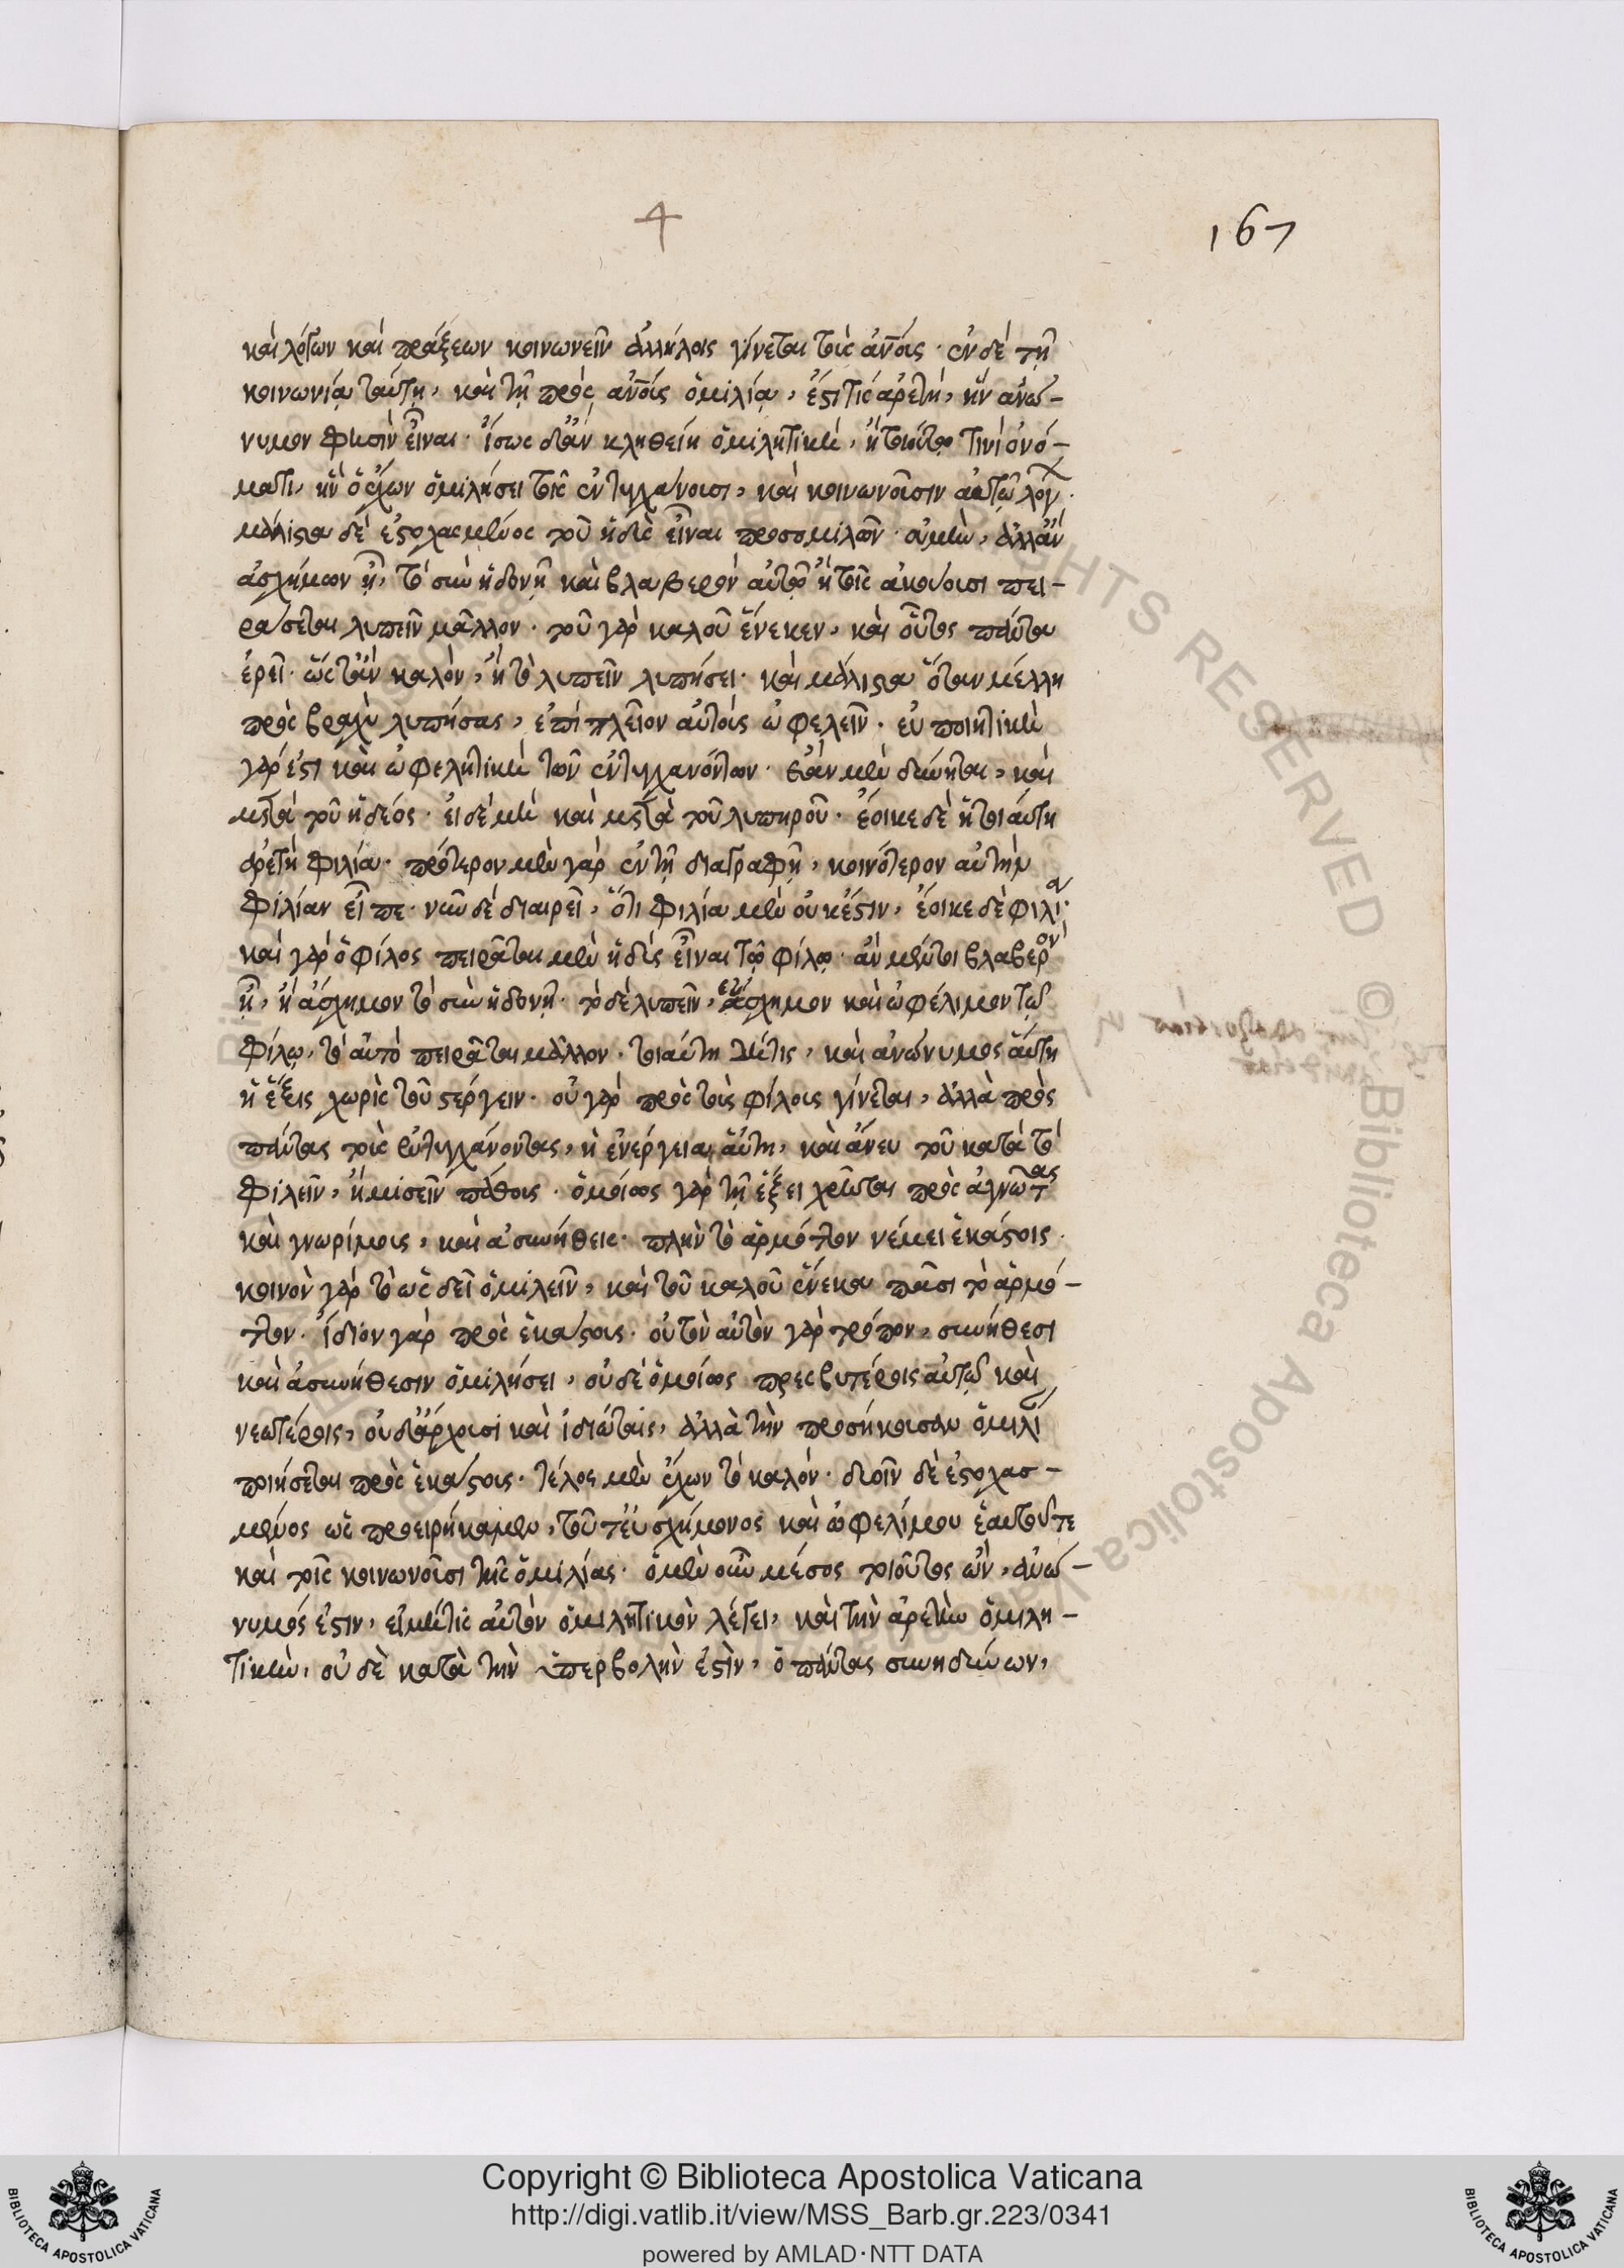 4
167
καὶ λόγων καὶ πράξεων κοινωνεῖν ἀλλήλοις γίνεται τοῖς ἀνοις· ἐν δὲ τῇ
κοινωνίᾳ ταύτῃ, καὶ τῇ πρὸς ἀνους ὁμιλίᾳ, ἔστι τίς ἀρετὴ, ἣν ἀνώ-
νυμον φησὶν εἶναι· ἴσως δ' ἂν κληθείη ὁμιλητικὴ, ἢ τοιούτῳ τινὶ ὀνό-
ματι, ἣν ὁ ἔχων ὁμιλήσει τοῖς ἐντυγχάνουσι, καὶ κοινωνοῦσιν αὐτῷ λόγ
μάλιστα δὲ ἐστοχασμένος τοῦ ἡδὺς εἶναι προσομιλῶν· οὐ μὴν, ἀλλ' ἂν
ἀσχήμων ᾖ, τὸ συνηδονῇ καὶ βλαβερὸν αὐτῷ ἢ τοῖς ἀκούουσι πει-
ράσεται λυπεῖν μᾶλλον· τοῦ γὰρ καλοῦ ἕνεκεν, καὶ οὗτος πάντα
ἐρεῖ· ὥς τ' ἂν καλὸν, ἢ τὸ λυπεῖν λυπήσει· καὶ μάλιστα ὅταν μέλλη
πρὸς βραχὺ λυπήσας, ἐπὶ πλεῖον αὐτοὺς ὠφελεῖν· εὐποιητικὴ
γάρ ἐστι καὶ ὠφελητικὴ τῶν ἐντυγχανόντων· ἐὰν μὲν δύνηται, καὶ
μετὰ τοῦ ἡδέος· εἰ δὲ μὴ καὶ μετὰ τοῦ λυπηροῦ· ἔοικε δὲ ἡ τοιαύτη
ἀρετὴ φιλία· πρότερον μὲν γὰρ ἐν τῇ διαγραφῇ, κοινότερον αὐτὴν
φιλίαν εἶπε· νῦν δὲ διαιρεῖ, ὅτι φιλία μὲν οὐκ ἔστιν, ἔοικε δὲ φιλία·
καὶ γὰρ ὁ φίλος πειρᾶται μὲν ἡδὺς εἶναι τῷ φίλῳ· ἂν μέντοι βλαβερὸν
ᾖ, ἢ ἄσχημον τὸ συνηδονῇ· τὸ δὲ λυπεῖν, εὔσχημον καὶ ὠφέλιμον τῷ
φίλῳ, τὸ αὐτὸ πειρᾶται μᾶλλον· τοιαύτη μέτις, καὶ ἀνώνυμος αὕτη
ἡ ἕξις χωρὶς τοῦ στέργειν· οὐ γὰρ πρὸς τοὺς φίλους γίνεται, ἀλλὰ πρὸς
πάντας τοὺς ἐντυγχάνοντας, ἡ ἐνέργεια αὕτη, καὶ ἄνευ τοῦ κατὰ τὸ
φιλεῖν, ἢ μισεῖν πάθους· ὁμοίως γὰρ τῇ ἕξει χρῆται πρὸς ἀγνῶτας
καὶ γνωρίμους, καὶ ἀσυνήθεις· πλὴν τὸ ἁρμόττον νέμει ἑκάστοις·
κοινὸν γὰρ τὸ ὡς δεῖ ὁμιλεῖν, καὶ τοῦ καλοῦ ἕνεκα πᾶσι τὸ ἁρμό-
ττον· ἴδιον γὰρ πρὸς ἑκάστοις· οὐ τὸν αὐτὸν γὰρ τρόπον, συνήθεσι
καὶ ἀσυνήθεσιν ὁμιλήσει, οὐδὲ ὁμοίως πρεσβυτέροις αὐτῷ καὶ
νεωτέροις, οὐδ' ἄρχουσι καὶ ἰδιώταις, ἀλλὰ τὴν προσήκουσαν ὁμιλί
ποιήσεται πρὸς ἑκάστοις· τέλος μὲν ἔχων τὸ καλόν· δυοῖν δὲ ἐστοχασ-
μένος ὡς προειρήκαμεν, τοῦ τ' εὐσχήμονος καὶ ὠφελίμου ἑαυτοῦ τε
καὶ τοῖς κοινωνοῦσι τῆς ὁμιλίας· ὁ μὲν οὖν μέσος τοιοῦτος ὢν, ἀνώ-
νυμός ἐστιν, εἰ μή τις αὐτὸν ὁμιλητικὸν λέγει, καὶ τὴν ἀρετὴν ὁμιλη-
τικὴν, οὐ δὲ κατὰ τὴν ὑπερβολήν ἐστὶν, ὁ πάντας συνηδύνων,
Copyright © Biblioteca Apostolica Vaticana
http://digi.vatlib.it/view/MSS_Barb.gr.223/0341
powered by AMLAD·NTT DATA
BIBLIOTECA APOSTOLICA VATICANA
BIBLIOTECA APOSTOLICA VATICANA